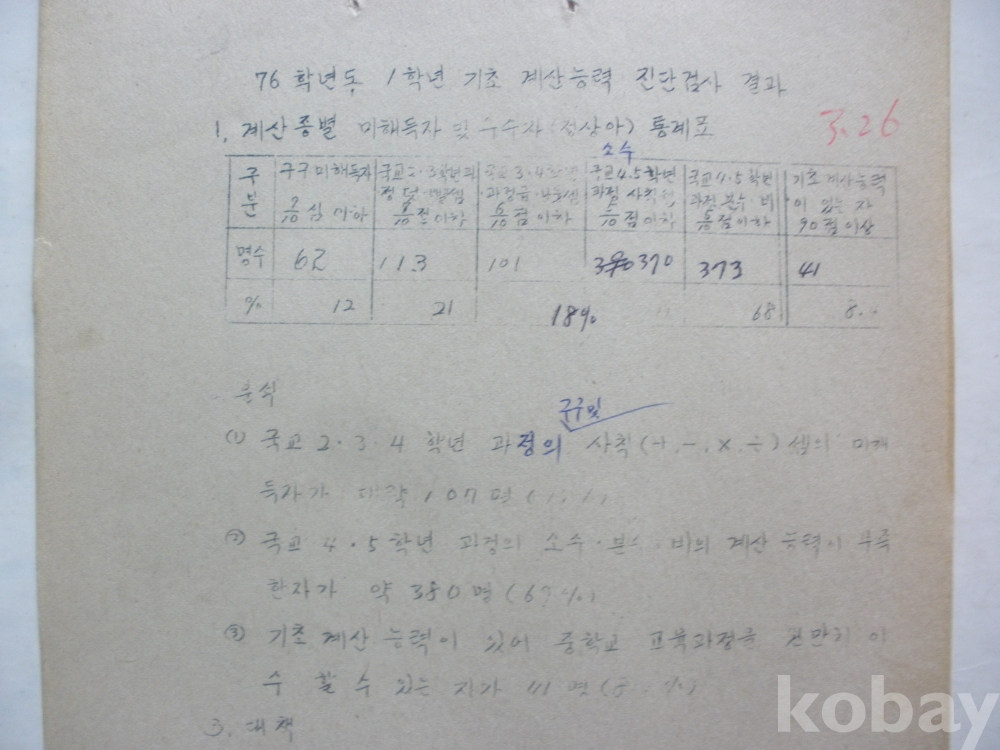 76 학년동 1학년 기초 계산능력 진단검사 결과
3.26
1. 계산종별 미해득자 및 우수자(정상아) 통계표
소수
구분 구구 미해득자 7/10 점 이하
국교 2·3학년과정 덧·뺄셈 8/10 점이하
국교 3·4 과정곱·나눗셈 6/10 점이하
국교 4.5학년 과정 사칙 5/10 점이하
국교 4·5 학년 과정 분수·비 6/10 점이하
기초 계산능력이 있는 자 90점이상
명수 62 113 101 370 373 41
% 12 21 18% 68 8
분석
구구및
(1) 국교 2·3·4 학년 과정의 사칙(+, -, ×, ÷)셈의 미해
득자가 107명
(2) 국교 4·5학년 과정의 소수·분수·비의 계산 능력이 부족
한자가 약 380명(67%)
(3) 기초 계산 능력이 있어 중학교 교육과정을 원만히 이
수 할 수 있는 자가 41명
3. 대책
kobay